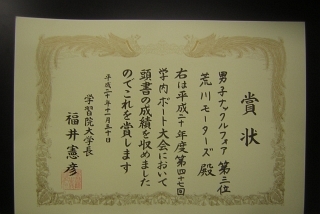 賞状
男子ナックルフォア 第三位
荒川モーターズ 殿
右は平成二十年度第四十七回
学内ボート大会において
頭書の成績を収めました
のでこれを賞します
平成二十年十一月三十日
学習院大学長
福井憲彦